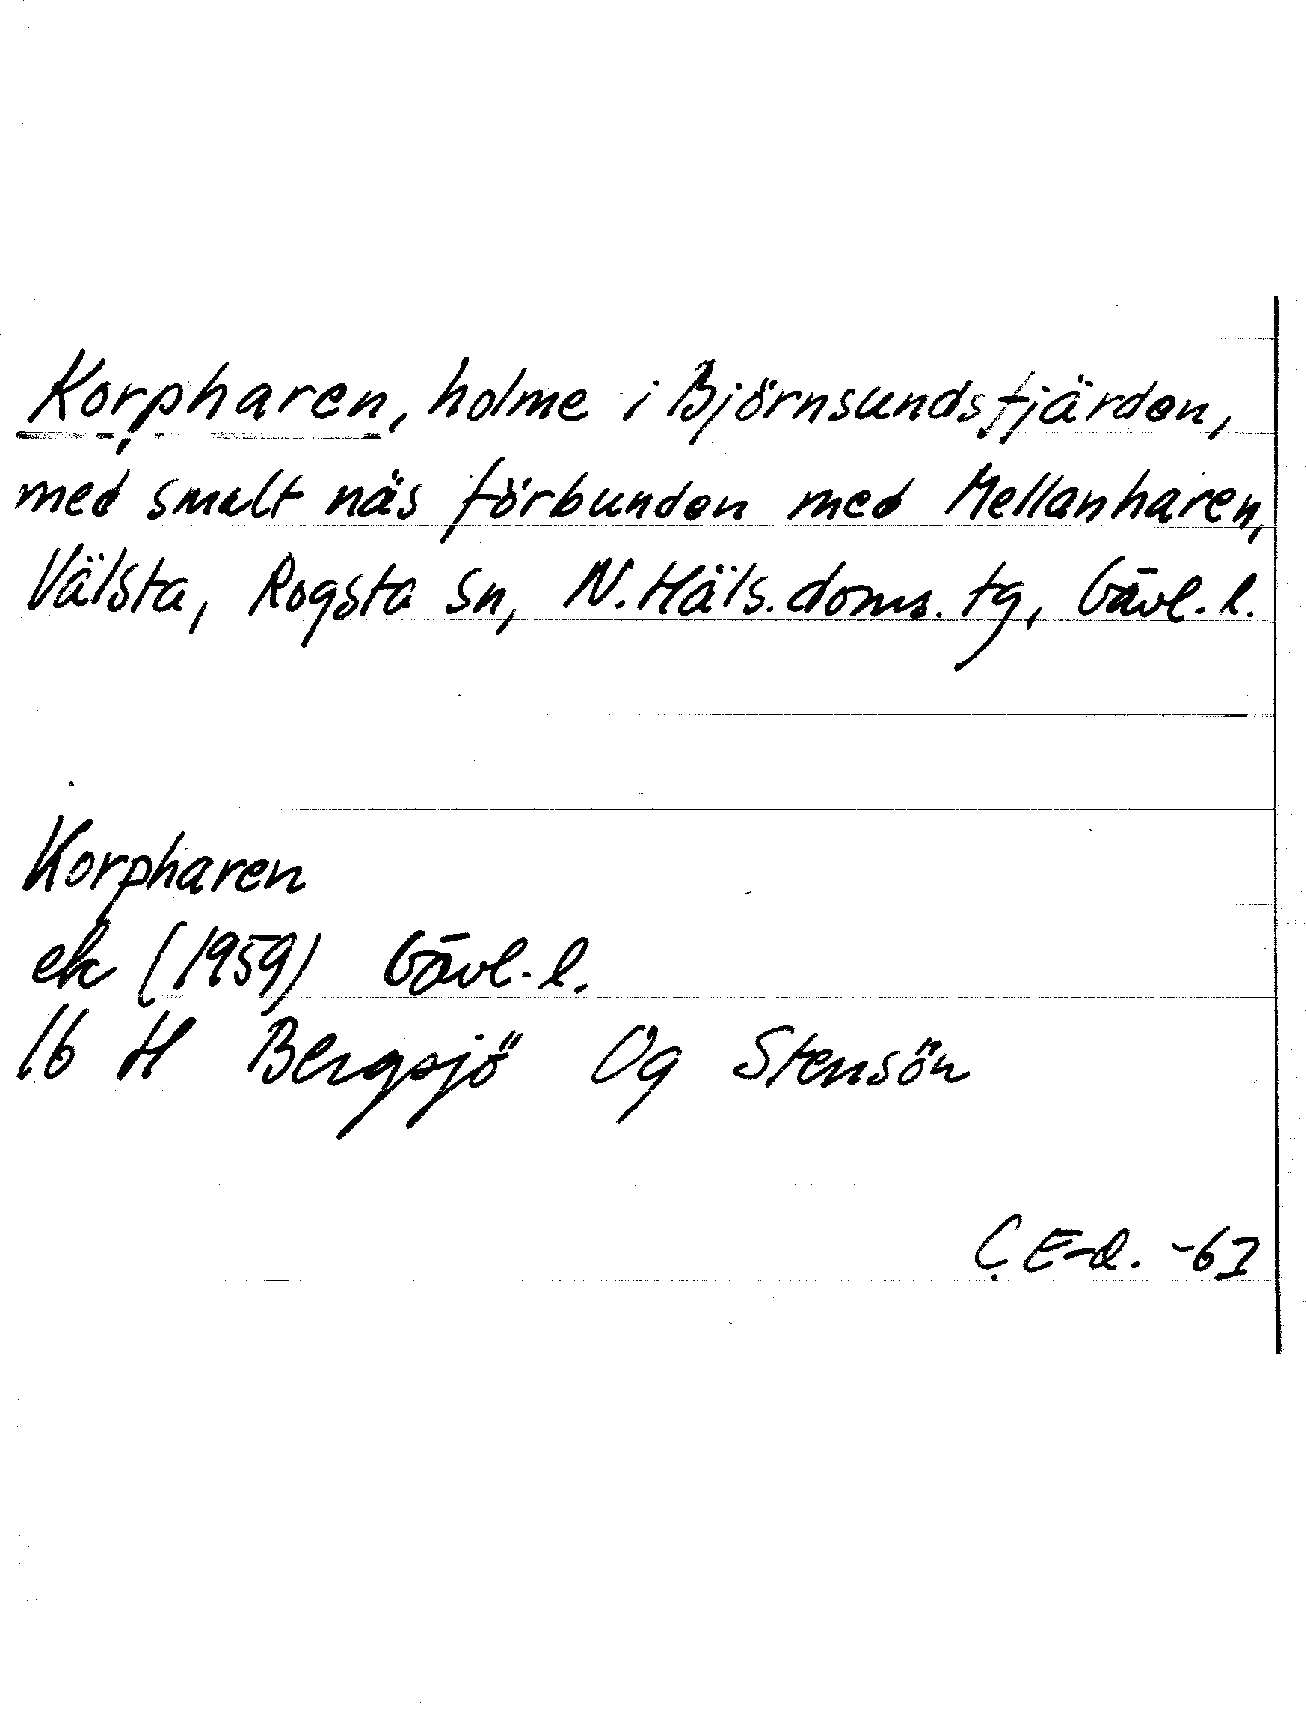 Korpharen, holme i Björnsundsfjärden,
med smalt näs förbunden med Mellanharen,
Välsta, Rogsta sn, N. Häls. doms. tg, Gävl. l.
Korpharen
ek (1959) Gävl. l.
16 H Bergsjö 0g Stensön
C. E-d. -63